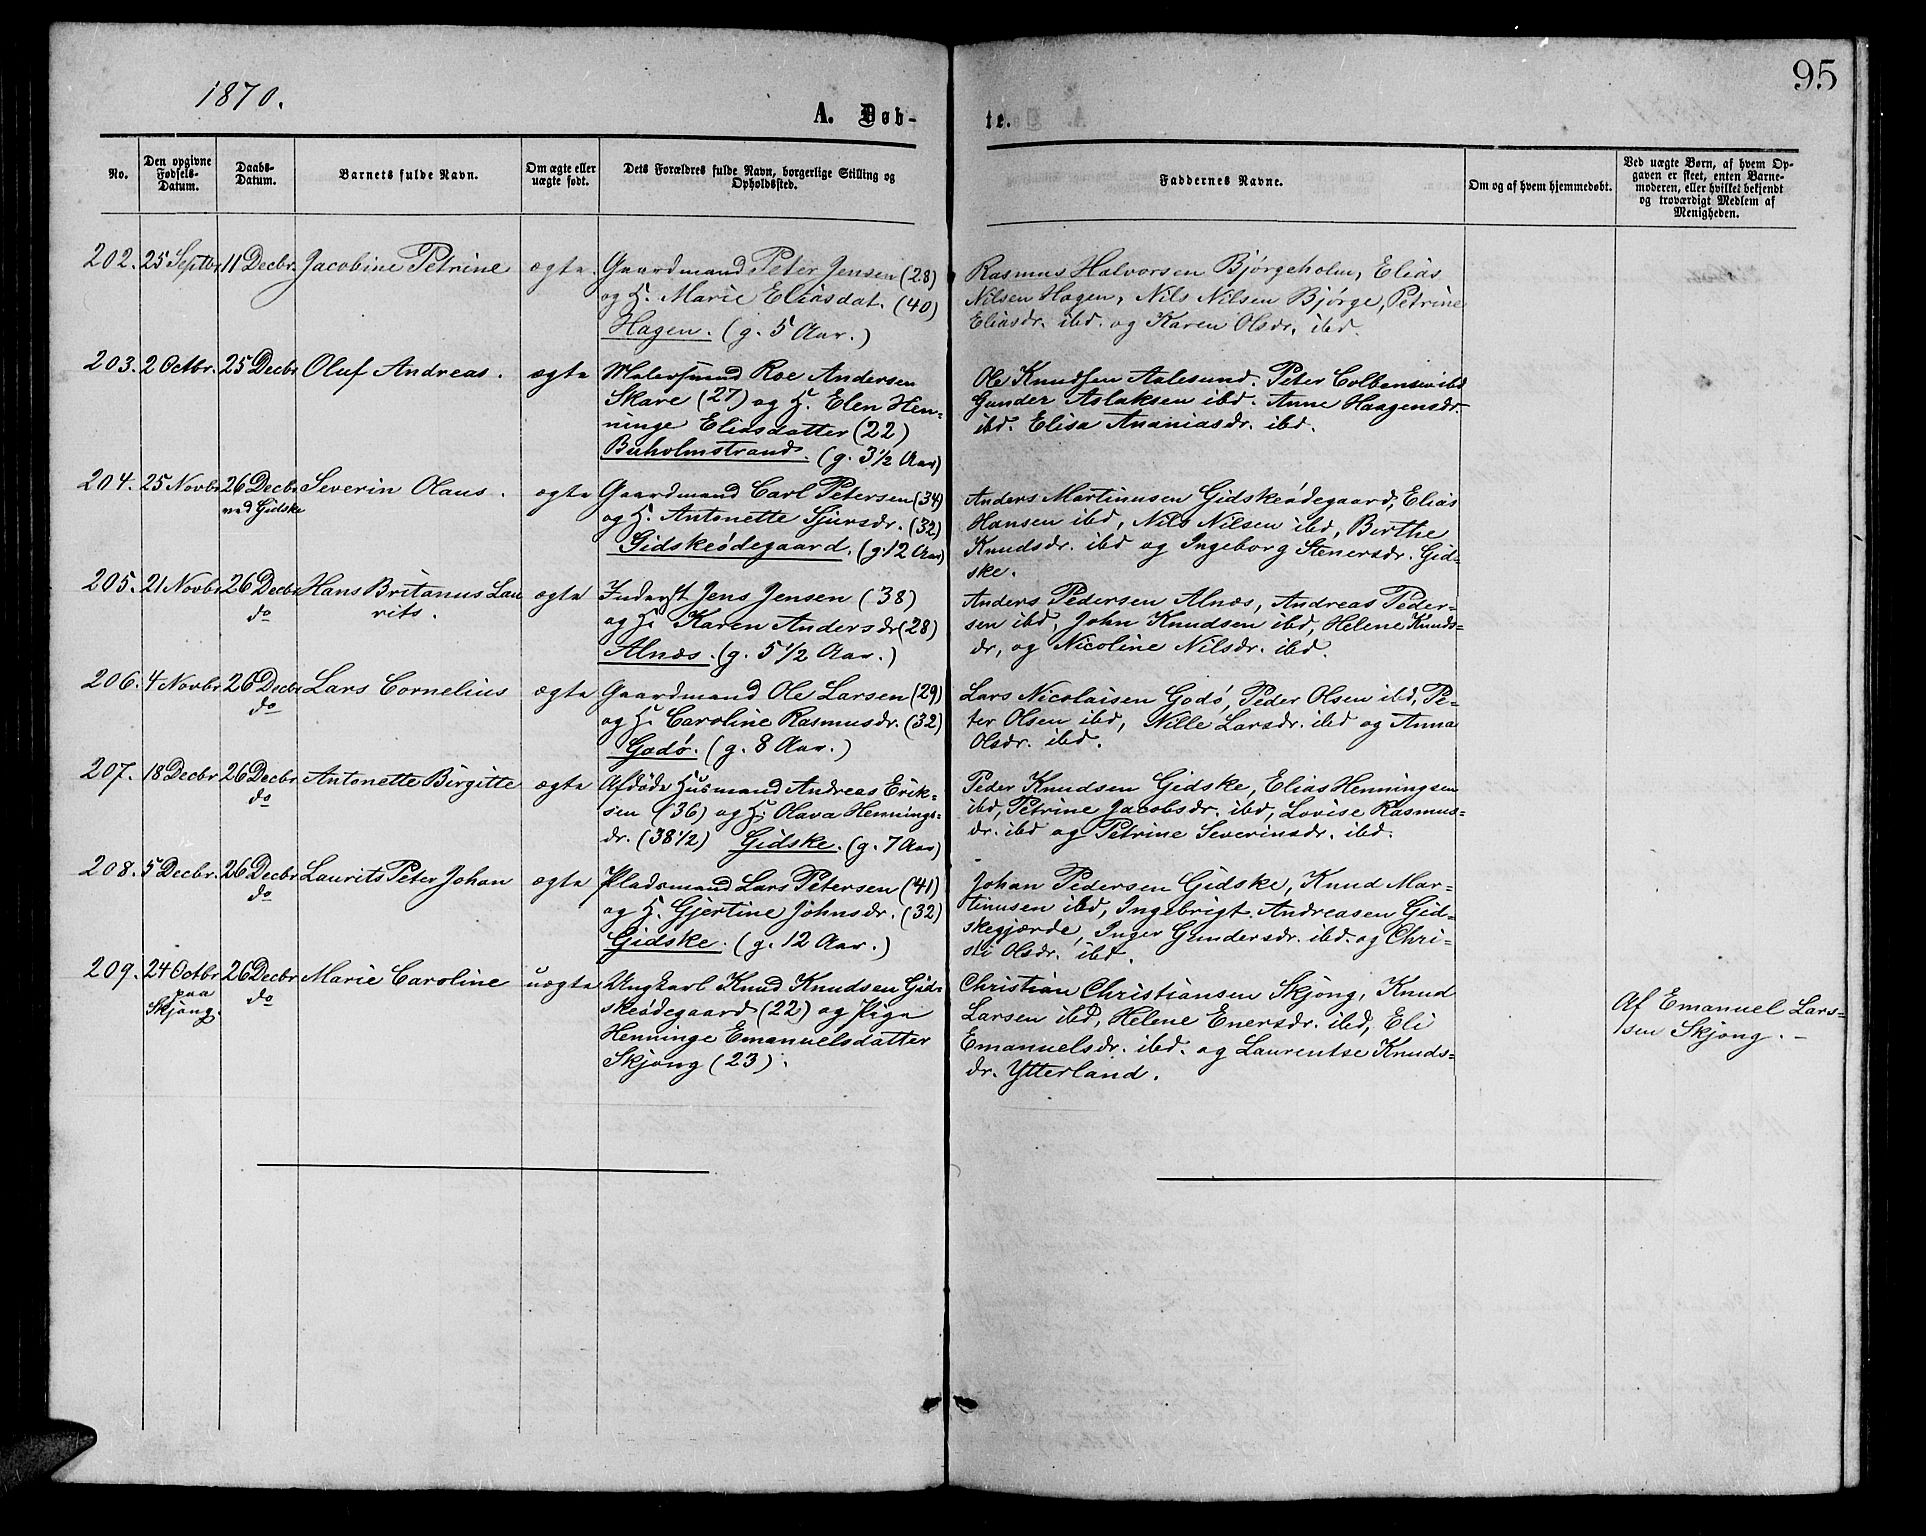 1870.
95
A. Døb-
te.
No.
Den opgivne
Fødsels-
Datum.
Daabs-
Datum.
Barnets fulde Navn.
Om ægte eller
uægte født.
Dets Forældres fulde Navn, borgerlige Stilling og
Opholdssted.
Faddernes Navne.
Om og af hvem hjemmedøbt.
Ved uægte Børn, af hvem Op-
gaven er skeet, enten Barne-
moderen, eller hvilket bekjendt
og troværdigt Medlem af
Menigheden.
202. 25 Septbr 11 Decbr. Jacobine Petrine ægte. Gaardmand Peter Jensen (28)
og H. Marie Eliasdat. (40)
Hagen. (g. 5 Aar.)
Rasmus Halvorsen Bjørgeholm, Elias
Nilsen Hagen, Nils Nilsen Bjørge, Petrine
Eliasdr. ibd. og Karen Olsdr. ibd.
203. 2 Octbr. 25 Decbr Oluf Andreas. ægte Malersvend Roe Andersen
Skare (27) og H. Elen Hen-
ninge Eliasdatter (22)
Buholmstrand. (g. 3 1/2 Aar)
Ole Knudsen Aalesund. Peter Colbensen ibd
Gunder Aslaksen ibd. Anne Haagensdr.
ibd. Elisa Ananiasdr. ibd.
204. 25 Novbr 26 Decbr Severin Olaus. ægte Gaardmand Carl Petersen (34)
ved Gidske
og H. Antonette Sjursdr. (32)
Gidskeødegaard. (g. 12 Aar)
Anders Martinusen Gidskeødegaard, Elias
Hansen ibd, Nils Nilsen ibd, Berthe
Knudsdr. ibd og Ingeborg Stenersdr. Gid-
ske.
205. 21 Novbr 26 Decbr Hans Britanus Lau ægte Inderst Jens Jensen (38)
do rits.
og H. Karen Andersdr (28)
Alnæs. (g. 5 1/2 Aar.)
Anders Pedersen Alnæs, Andreas Peder-
sen ibd, John Knudsen ibd, Helene Knuds-
dr, og Nicoline Nilsdr. ibd.
206. 4 Novbr 26 Decbr Lars Cornelius ægte Gaardmand Ole Larsen (29)
do
og H. Caroline Rasmusdr. (32)
Godø. (g. 8 Aar.)
Lars Nicolaisen Godø, Peder Olsen ibd, Pe-
ter Olsen ibd, Nille Larsdr. ibd og Anna
Olsdr. ibd.
207. 18 Decbr 26 Decbr Antonette Birgitte ægte Afdøde Husmand Andreas Erik-
do
sen (36) og H. Olava Hennings-
dr. (38 1/2) Gidske. (g. 7 Aar)
Peder Knudsen Gidske, Elias Henningsen
ibd, Petrine Jacobsdr. ibd, Lovise Rasmus-
dr. ibd og Petrine Severinsdr. ibd.
208. 5 Decbr. 26 Decbr Laurits Peter Johan ægte Pladsmand Lars Petersen (41)
do
og H. Gjertine Johnsdr. (32)
Gidske. (g. 12 Aar.)
Johan Pedersen Gidske, Knud Mar-
tinusen ibd, Ingebrigt Andreasen Gid-
skegjærde, Inger Gundersdr. ibd. og Chri-
sti Olsdr. ibd.
209. 24 Octbr 26 Decbr Marie Caroline uægte Ungkarl Knud Knudsen Gid-
paa do
Skjong.
skeødegaard (22) og Pige
Henninge Emanuelsdatter
Skjong (23).
Christian Christiansen Skjong, Knud
Larsen ibd, Helene Enersdr. ibd, Eli
Emanuelsdr. ibd. og Laurentse Knuds-
dr. Ytterland.
Af Emanuel Lars-
sen Skjong. –